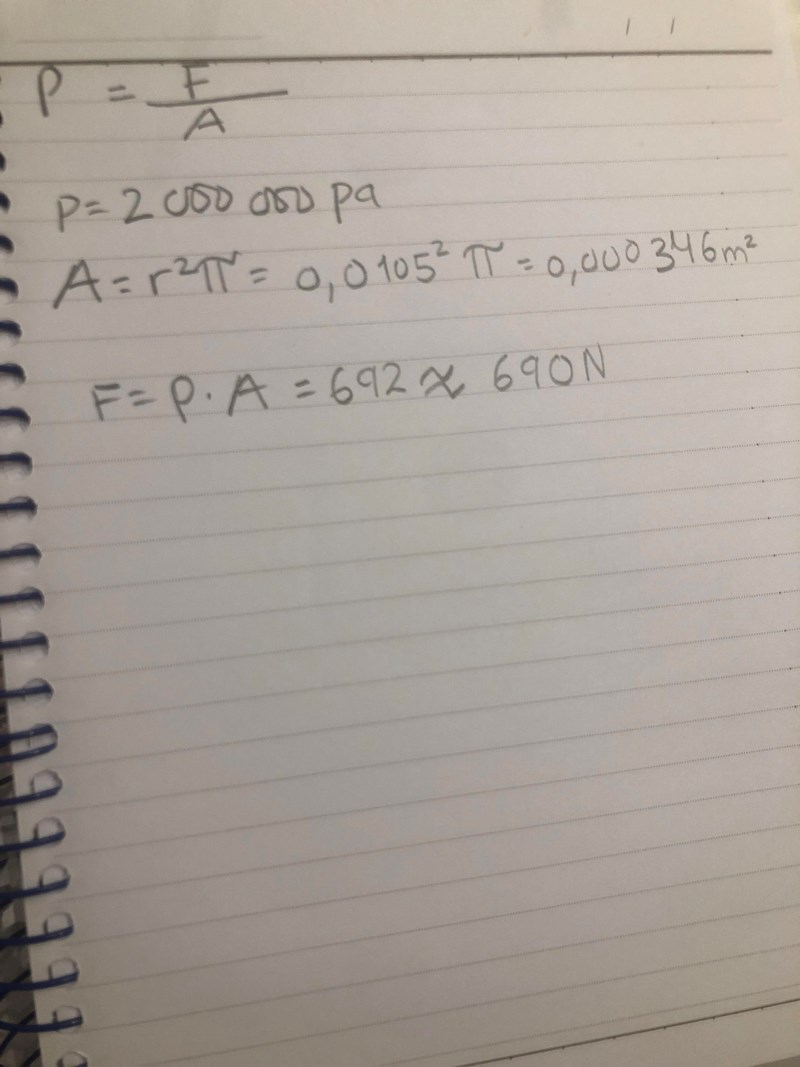 P = F/A
P = 2 000 000 pa
A = r²π = 0,0105² π = 0,000346m²
F = P · A = 692 ≈ 690N